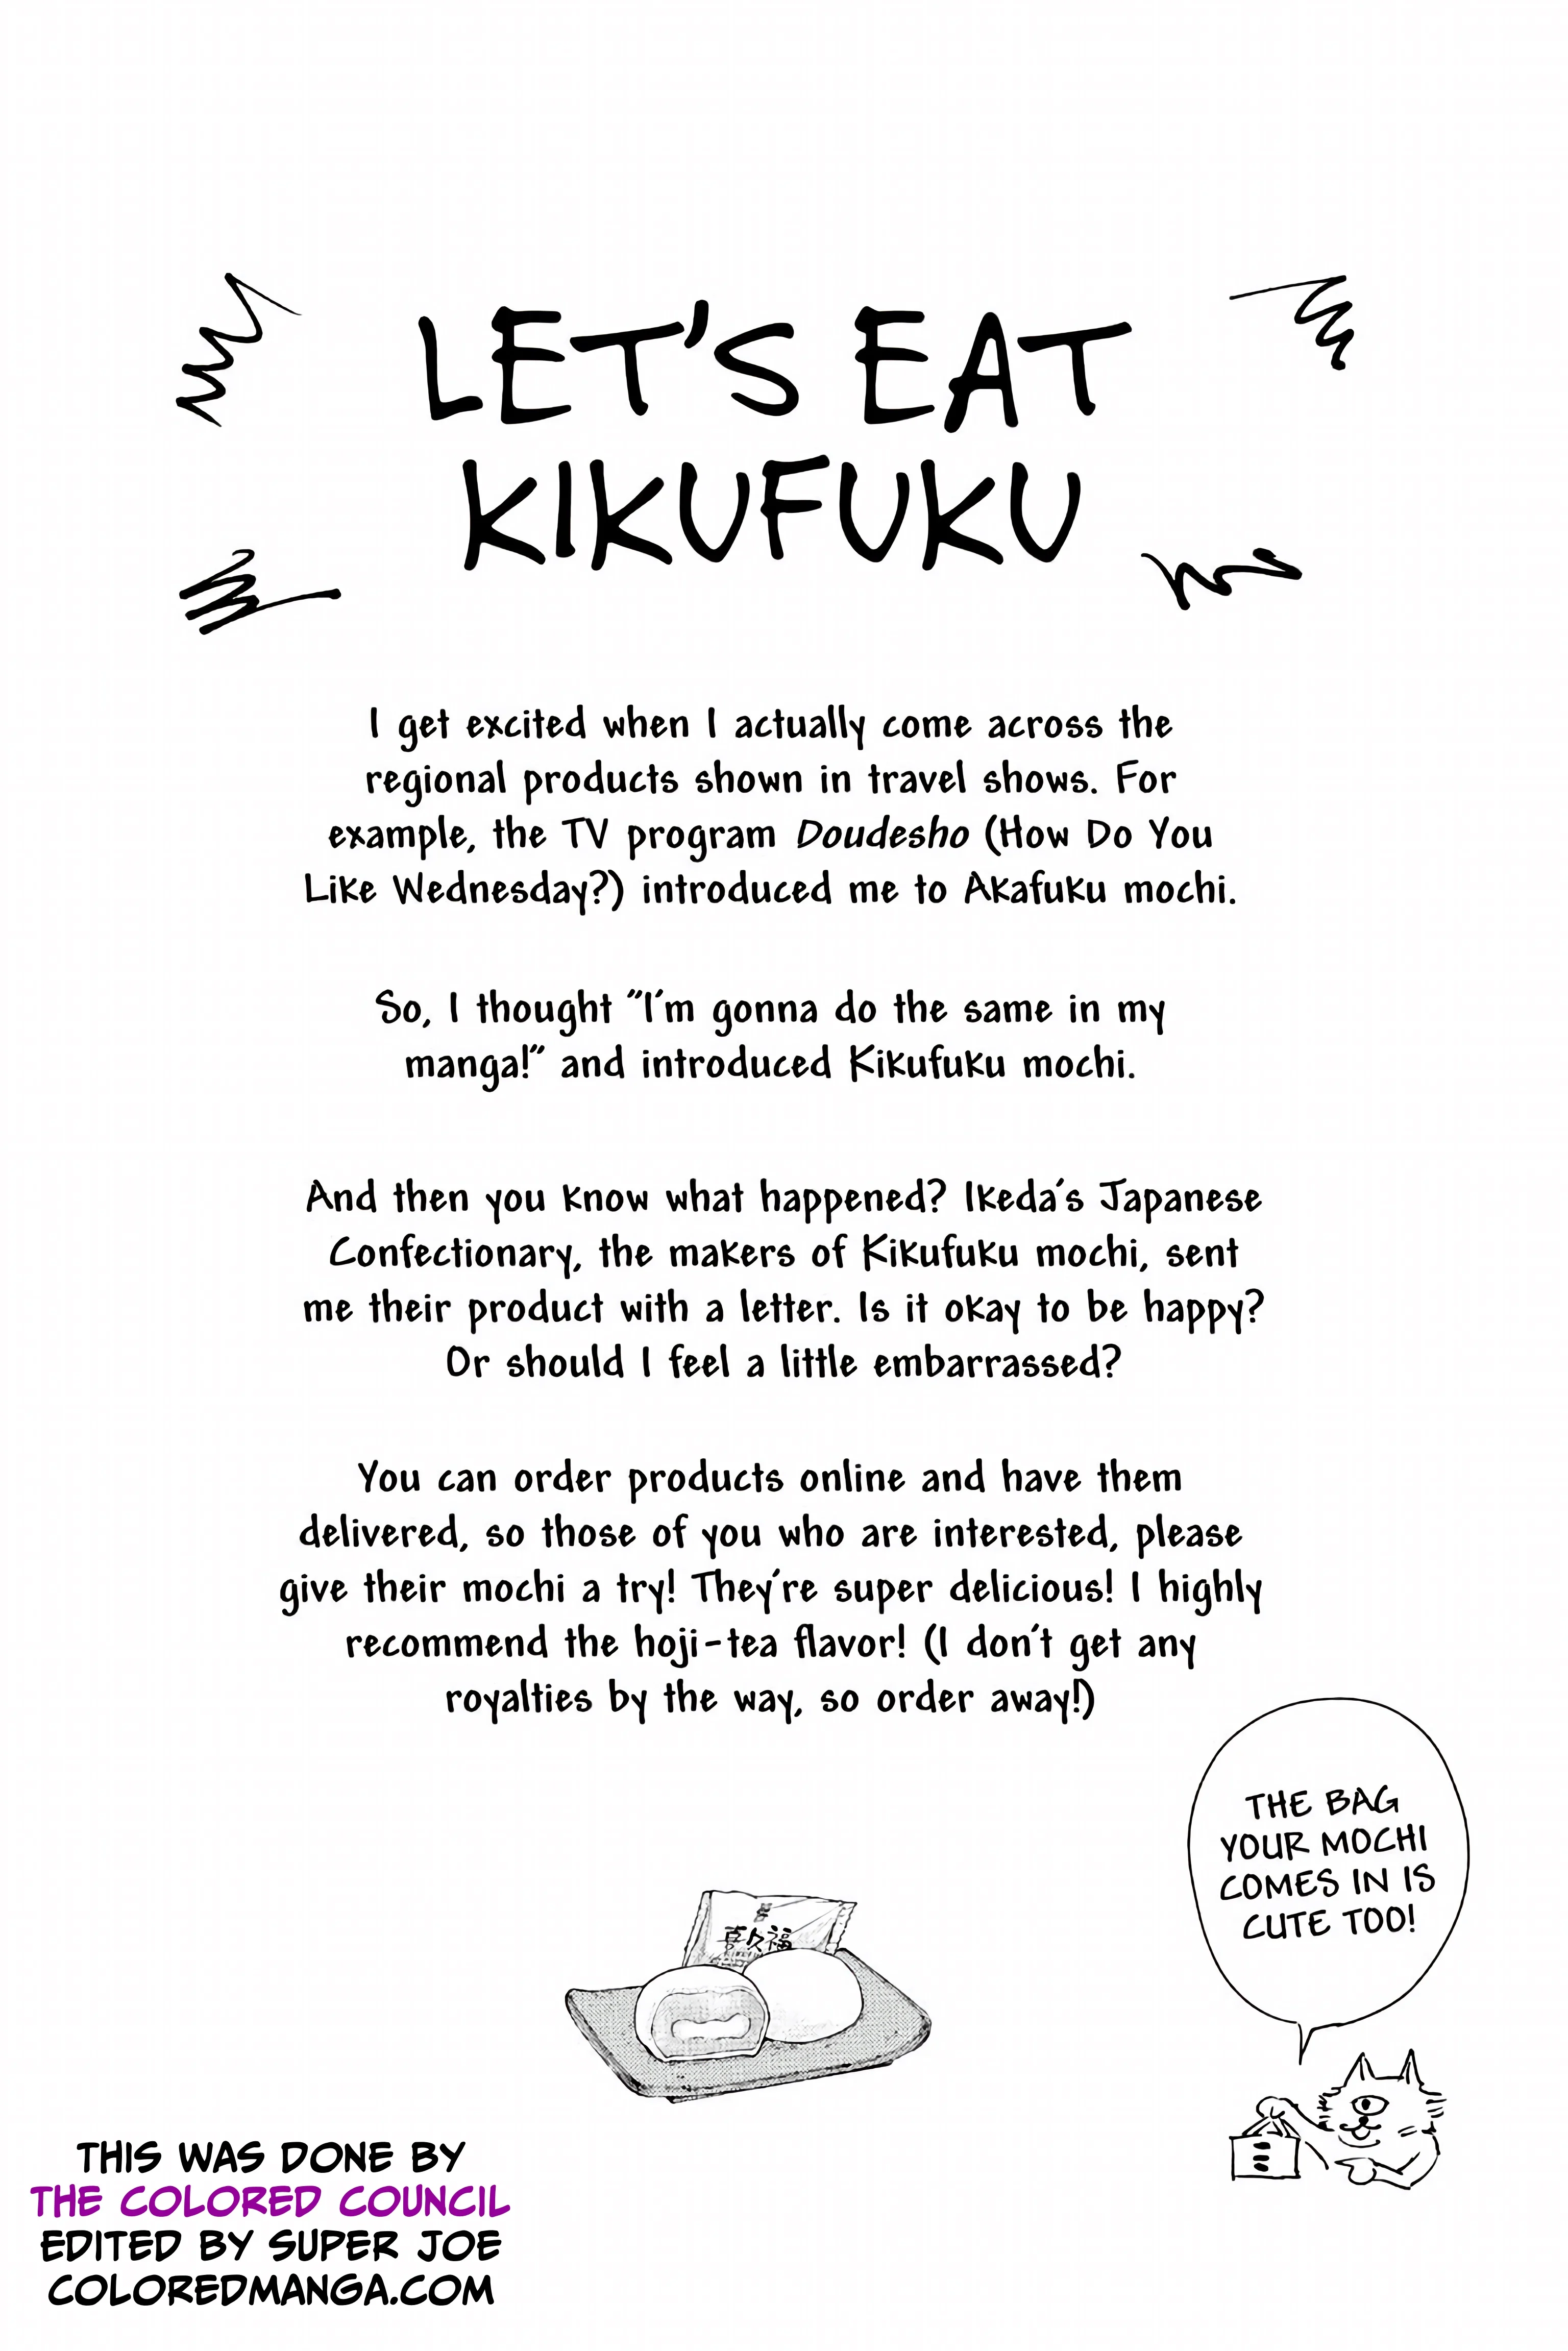 LET'S EAT
KIKUFUKU
I get excited when I actually come across the
regional products shown in travel shows. For
example, the TV program Doudesho (How Do You
Like Wednesday?) introduced me to Akafuku mochi.
So, I thought "I'm gonna do the same in my
manga!" and introduced Kikufuku mochi.
And then you know what happened? Ikeda's Japanese
Confectionary, the makers of Kikufuku mochi, sent
me their product with a letter. Is it okay to be happy?
Or should I feel a little embarrassed?
You can order products online and have them
delivered, so those of you who are interested, please
give their mochi a try! They're super delicious! I highly
recommend the hoji-tea flavor! (I don't get any
royalties by the way, so order away!)
THE BAG
YOUR MOCHI
COMES IN IS
CUTE TOO!
喜久福
THIS WAS DONE BY
THE COLORED COUNCIL
EDITED BY SUPER JOE
COLOREDMANGA.COM